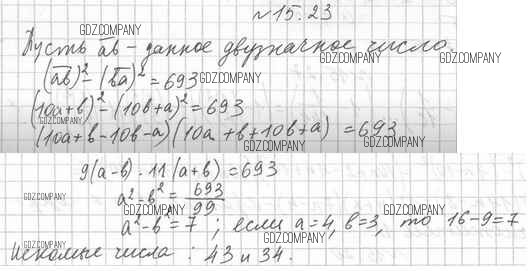 №15.23
Пусть a̅b̅ - данное двузначное число.
(a̅b̅)² - (b̅a̅)² = 693
(10a+b)² - (10b+a)² = 693
(10a+b-10b-a)(10a+b+10b+a) = 693
9(a-b)·11(a+b) = 693
a²-b² = 693/99
a²-b² = 7; если a=4, b=3, то 16-9=7.
Искомые числа: 43 и 34.
GDZ.COMPANY
GDZ.COMPANY
GDZ.COMPANY
GDZ.COMPANY
GDZ.COMPANY
GDZ.COMPANY
GDZ.COMPANY
GDZ.COMPANY
GDZ.COMPANY
GDZ.COMPANY
GDZ.COMPANY
GDZ.COMPANY
GDZ.COMPANY
GDZ.COMPANY